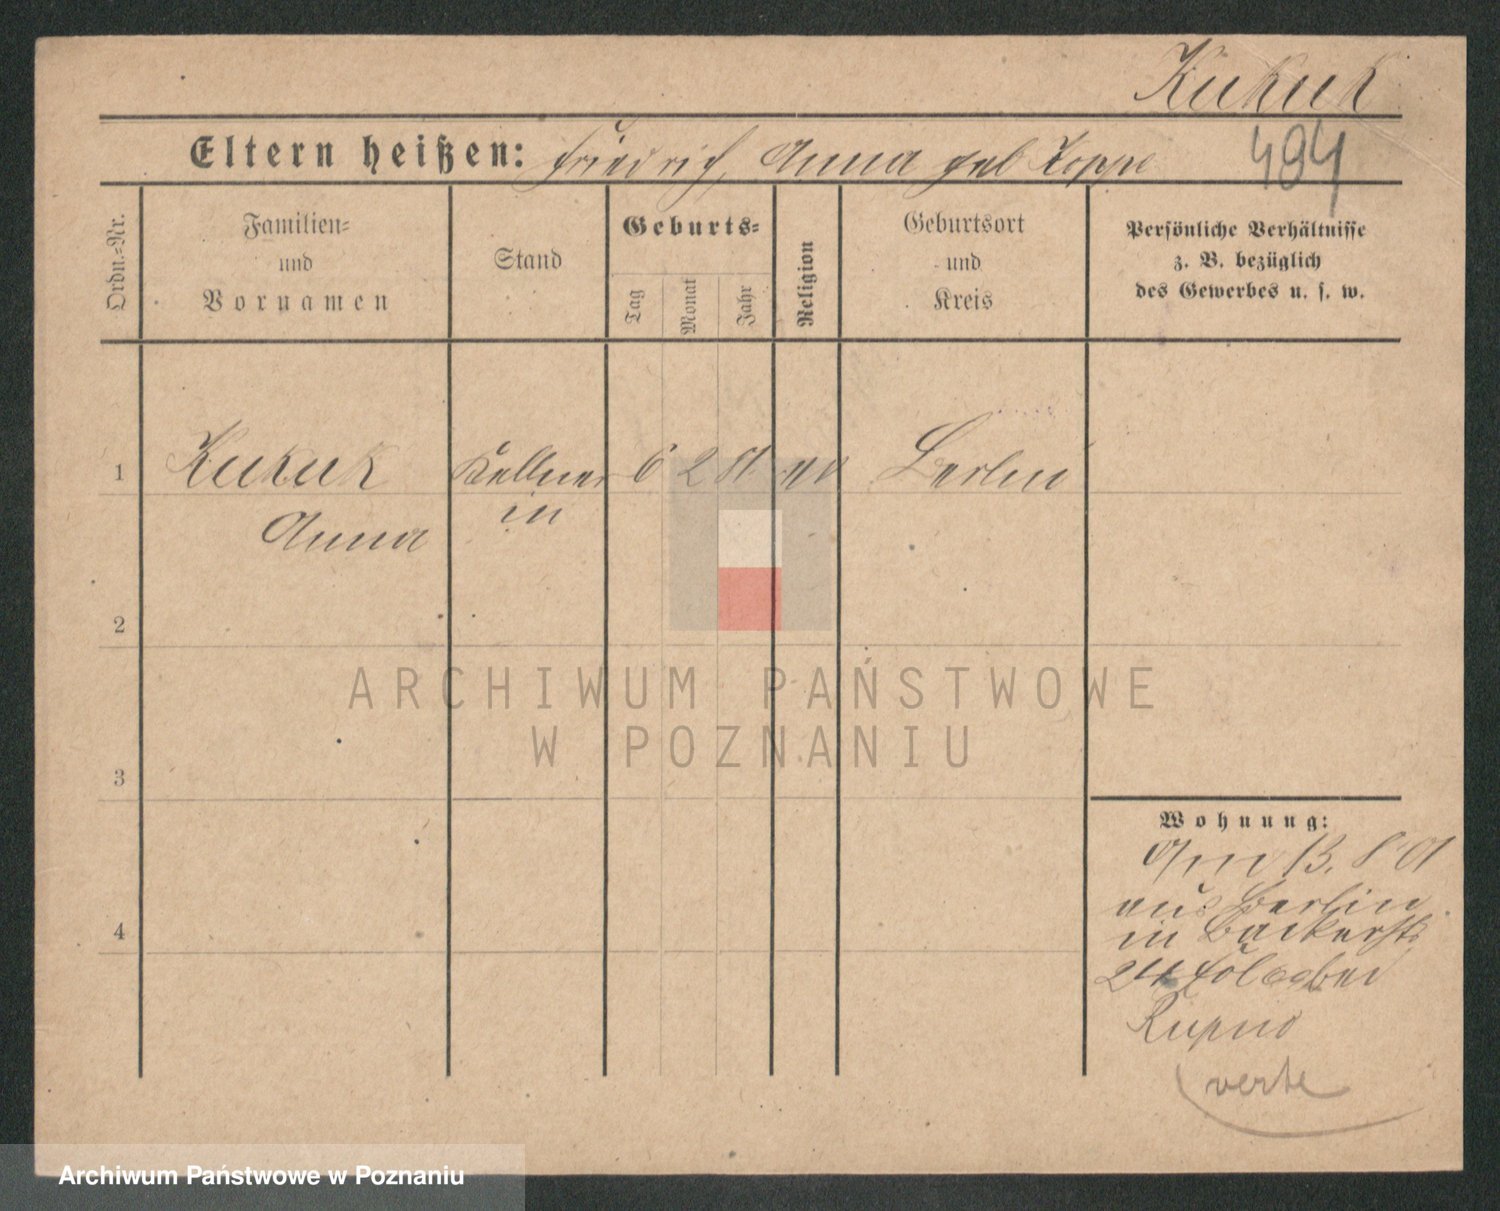 Kukuk
494
Eltern heißen: Friedrich, Anna geb Koppe
Ordn.=Nr.
Familien=
und
Vornamen
Stand
Geburts=
Tag
Monat
Jahr
Religion
Geburtsort
und
Kreis
Persönliche Verhältnisse
z. B. bezüglich
des Gewerbes u. s. w.
1 Kukuk Kellner 6 2 81 ev Berlin
in
Anna
2
3
4
Wohnung:
13. 8 01
aus Berlin
in Bäckerstr
24 bei
verte
ARCHIWUM PAŃSTWOWE
W POZNANIU
Archiwum Państwowe w Poznaniu